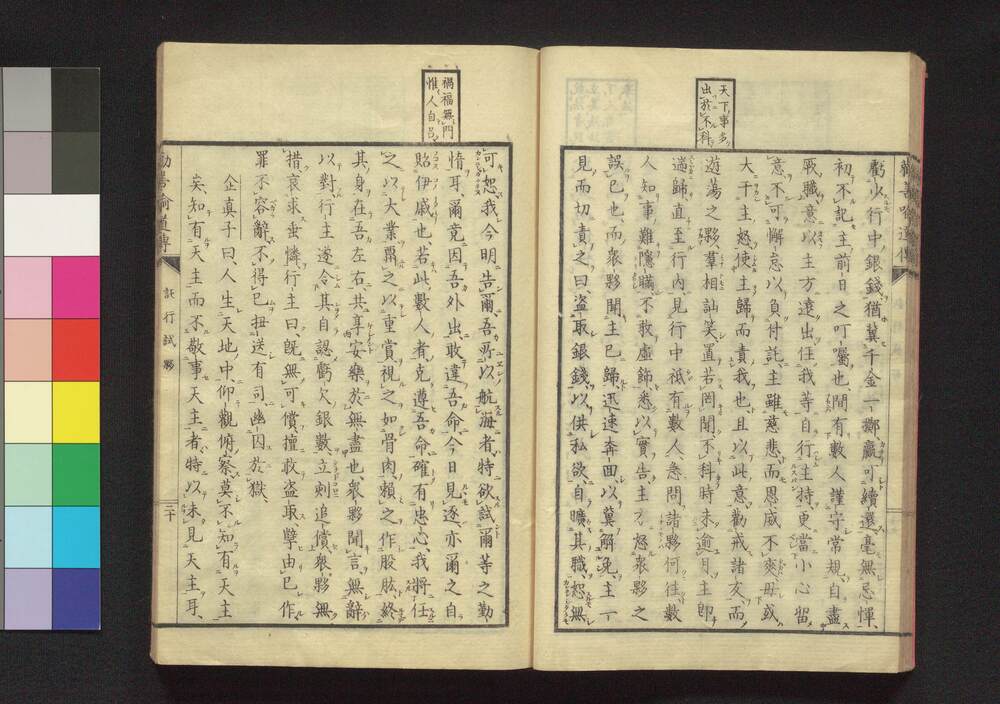 勸善喩道傳
天下事多
出於不料
虧少行中銀錢猶冀千金一擲贏可續還毫無忌憚、
初不記主前日之叮囑也、間有數人謹守常規自盡
厥職意以主方遠出任我等自行主持更當小心留
意不可懈怠以負付託、主雖慈悲而恩威不爽毋或
大干主怒使主歸而責我也、且以此意勸戒諸友、而
遊蕩之夥羣相訕笑、置若罔聞、不料時未逾月主即
遄歸、直至行內、見行中祗有數人、急問諸夥何往數
人知事難隱瞞不敢虛飾、悉以實告、主方怒衆夥之
誤已也、而衆夥聞主已歸、迅速奔回以冀解免、主一
見而切責之曰、盜取銀錢、以供私欲、自曠其職、恕無
禍福無門
惟人自召
可恕我今明告爾吾所以航海者、特欲試爾等之勤
惰耳、爾竟因吾外出、敢違吾命、今日見逐、亦爾之自
貽伊戚也、若此數人者、克遵吾命、確有忠心、我將任
之以大業、賚之以重賞、視之如骨肉、賴之作股肱、終
其身在吾左右、共享安樂於無盡也、衆夥聞言、無辭
以對、行主遂令其自認虧欠銀數、立刻追償、衆夥無
措、哀求虫憐、行主曰、旣無可償、擅敢盜取、孽由已作、
罪不容辭、不得已扭送有司、幽囚於獄、
企眞子曰、人生天地中、仰觀俯察、莫不知有天主
矣、知有天主而不敬事天主者、特以未見天主耳、
勸善喩道傳
託行試夥
二十